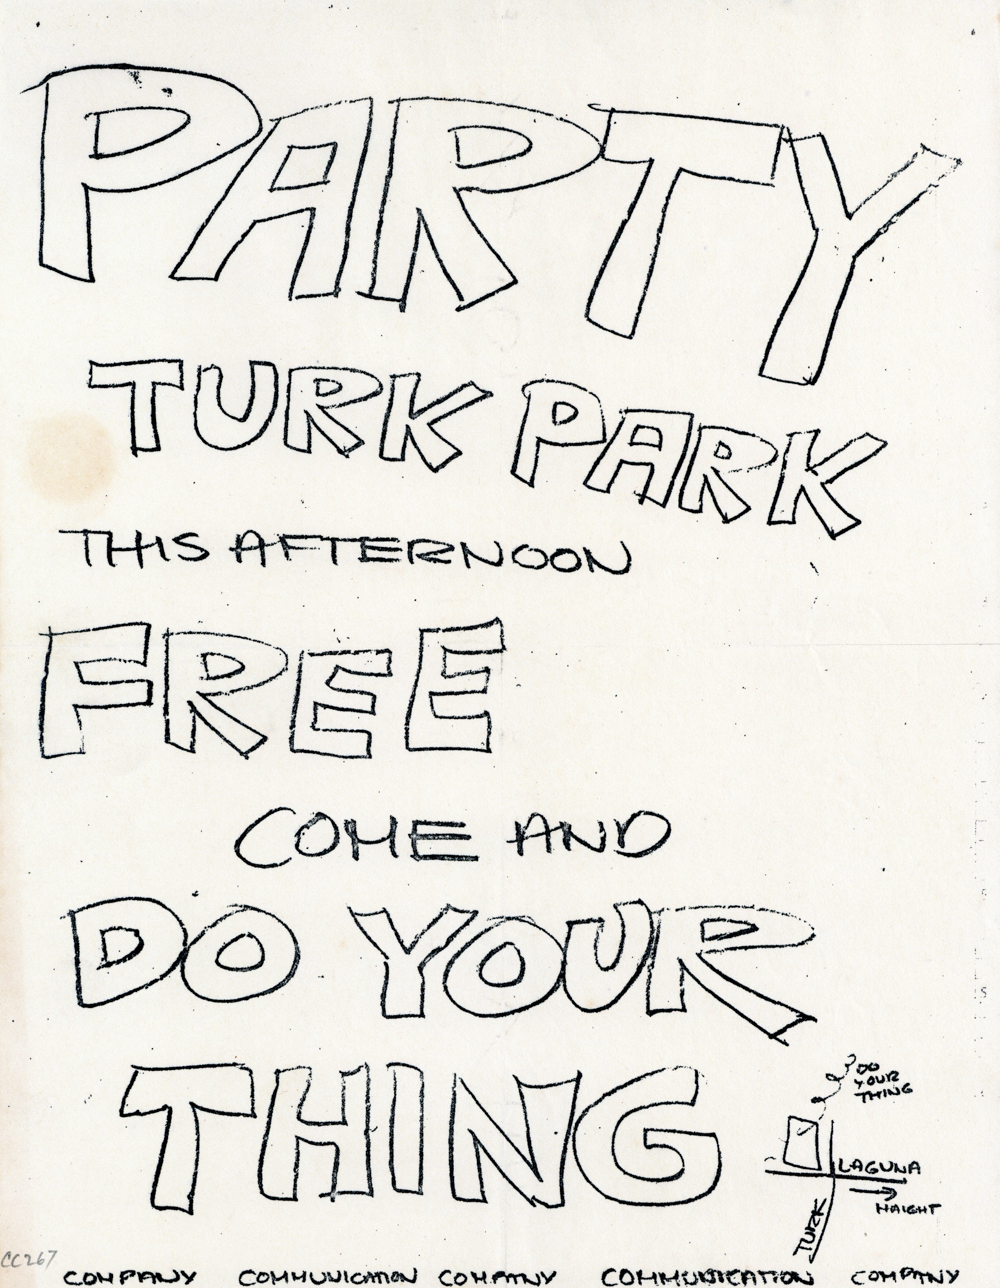 PARTY
TURK PARK
THIS AFTERNOON
FREE
COME AND
DO YOUR
THING
DO
YOUR
THING
LAGUNA
HAIGHT
TURK
CC267
COMPANY COMMUNICATION COMPANY COMMUNICATION COMPANY